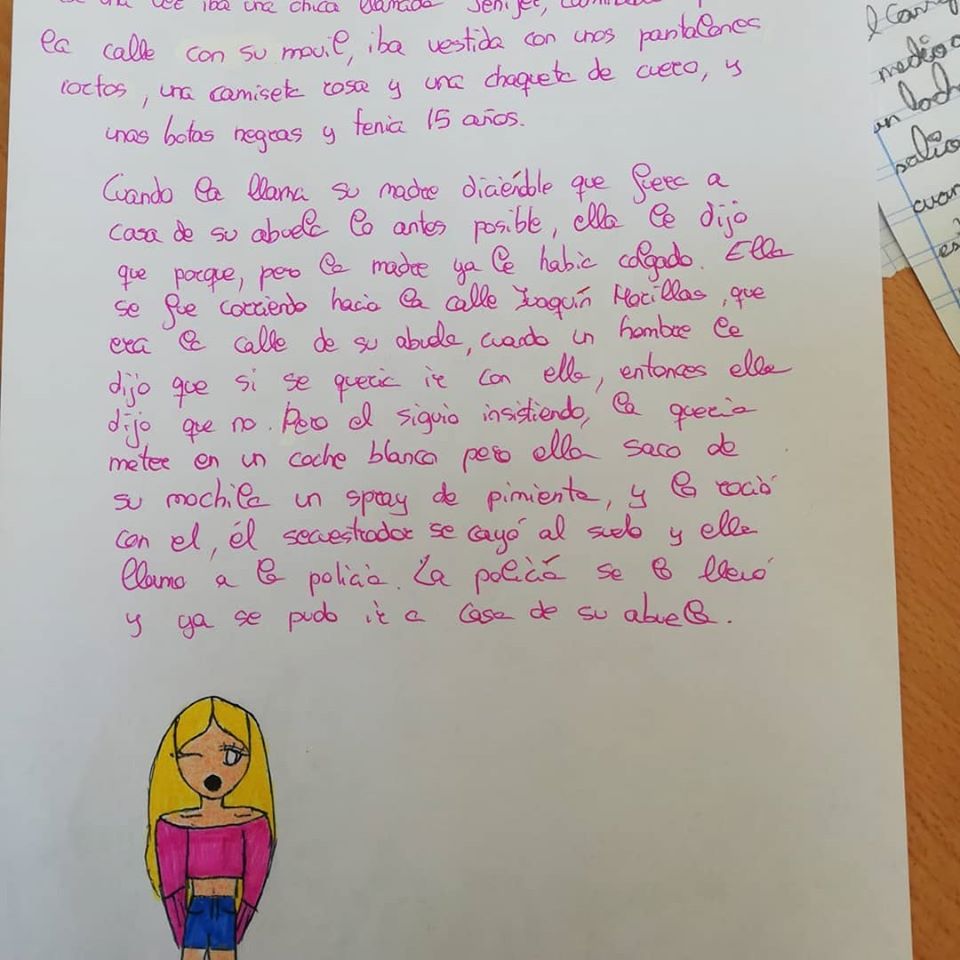 una vez iba una chica llamada Jenifer,
la calle con su movil, iba vestida con unos pantalones
rortos, una camiseta rosa y una chaqueta de cuero, y
unas botas negras y tenia 15 años.
Cuando la llama su madre diciéndole que fuera a
casa de su abuela lo antes posible, ella le dijo
que porque, pero la madre ya le habia colgado. Ella
se fue corriendo hacia la calle Joaquín Morillas, que
era la calle de su abuela, cuando un hombre le
dijo que si se queria ir con ella, entonces ella
dijo que no. Pero el siguio insistiendo, la queria
meter en un coche blanco pero ella saco de
su mochila un spray de pimienta, y lo roció
con el, él secuestrador se cayó al suelo y ella
llamo a la policia. La policiá se lo llevó
y ya se pudo ir a casa de su abuela.
l
medio
un
salio